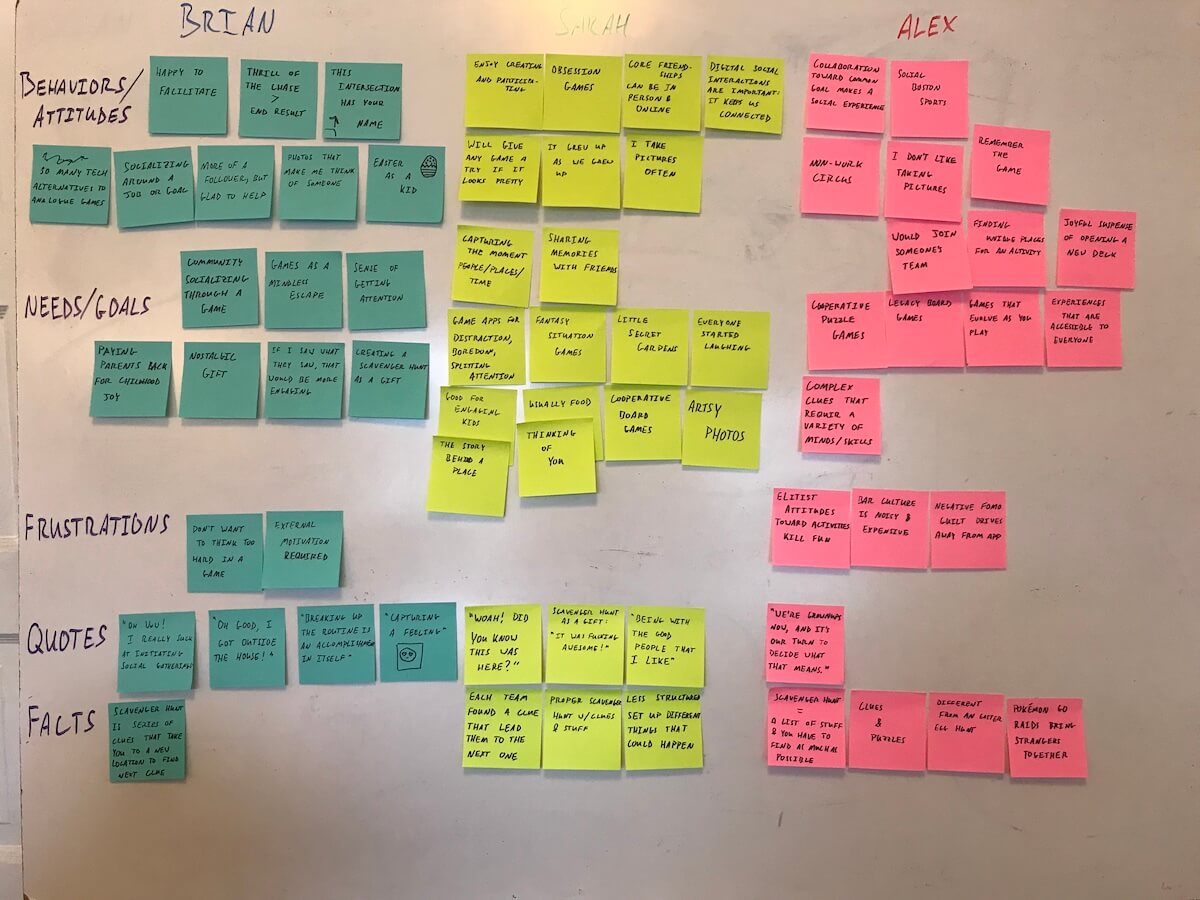 BRIAN
SARAH
ALEX
BEHAVIORS/
ATTITUDES
HAPPY TO
FACILITATE
THRILL OF
THE CHASE
>
END RESULT
THIS
INTERSECTION
HAS YOUR
NAME
SO MANY TECH
ALTERNATIVES TO
ANALOGUE GAMES
SOCIALIZING
AROUND A
JOB OR GOAL
MORE OF A
FOLLOWER, BUT
GLAD TO HELP
PHOTOS THAT
MAKE ME THINK
OF SOMEONE
EASTER
AS A
KID
ENJOY CREATING
AND PARTICIPA-
TING
OBSESSION
GAMES
CORE FRIEND-
SHIPS
CAN BE IN
PERSON &
ONLINE
DIGITAL SOCIAL
INTERACTIONS
ARE IMPORTANT:
IT KEEPS US
CONNECTED
WILL GIVE
ANY GAME A
TRY IF IT
LOOKS PRETTY
IT GREW UP
AS WE GREW
UP
I TAKE
PICTURES
OFTEN
COLLABORATION
TOWARD COMMON
GOAL MAKES A
SOCIAL EXPERIENCE
SOCIAL
BOSTON
SPORTS
NON-WORK
CIRCUS
I DON'T LIKE
TAKING
PICTURES
REMEMBER
THE
GAME
WOULD JOIN
SOMEONE'S
TEAM
FINDING
UNIQUE PLACES
FOR AN ACTIVITY
JOYFUL SUSPENSE
OF OPENING A
NEW DECK
NEEDS/GOALS
COMMUNITY
SOCIALIZING
THROUGH A
GAME
GAMES AS A
MINDLESS
ESCAPE
SENSE OF
GETTING
ATTENTION
PAYING
PARENTS BACK
FOR CHILDHOOD
JOY
NOSTALGIC
GIFT
IF I SAW WHAT
THEY SAW, THAT
WOULD BE MORE
ENGAGING
CREATING A
SCAVENGER HUNT
AS A GIFT
CAPTURING
THE MOMENT
PEOPLE/PLACES/
TIME
SHARING
MEMORIES
WITH FRIENDS
GAME APPS FOR
DISTRACTION,
BOREDOM,
SPLITTING
ATTENTION
FANTASY
SITUATION
GAMES
LITTLE
SECRET
GARDENS
EVERYONE
STARTED
LAUGHING
GOOD FOR
ENGAGING
KIDS
USUALLY FOOD
COOPERATIVE
BOARD
GAMES
ARTSY
PHOTOS
THE STORY
BEHIND A
PLACE
THINKING
OF
YOU
COOPERATIVE
PUZZLE
GAMES
LEGACY BOARD
GAMES
GAMES THAT
EVOLVE AS YOU
PLAY
EXPERIENCES
THAT ARE
ACCESSIBLE TO
EVERYONE
COMPLEX
CLUES THAT
REQUIR A
VARIETY OF
MINDS/SKILLS
FRUSTRATIONS
DON'T WANT
TO THINK TOO
HARD IN A
GAME
EXTERNAL
MOTIVATION
REQUIRED
ELITIST
ATTITUDES
TOWARD ACTIVITIES
KILL FUN
BAR CULTURE
IS NOISY &
EXPENSIVE
NEGATIVE FOMO
GUILT DRIVES
AWAY FROM APP
QUOTES
"OH UUU!
I REALLY SUCK
AT INITIATING
SOCIAL GATHERINGS
"OH GOOD, I
GOT OUTSIDE
THE HOUSE!"
"BREAKING UP
THE ROUTINE IS
AN ACCOMPLISHMENT
IN ITSELF"
"CAPTURING
A FEELING"
"WOAH! DID
YOU KNOW
THIS WAS
HERE?"
SCAVENGER HUNT
AS A GIFT:
"IT WAS FUCKING
AWESOME!"
"BEING WITH
THE GOOD
PEOPLE THAT
I LIKE"
"WE'RE GROWNUPS
NOW, AND IT'S
OUR TURN TO
DECIDE WHAT
THAT MEANS."
FACTS
SCAVENGER HUNT
IS SERIES OF
CLUES THAT TAKE
YOU TO A NEW
LOCATION TO FIND
NEXT CLUE
EACH TEAM
FOUND A CLUE
THAT LEAD
THEM TO THE
NEXT ONE
PROPER SCAVENGER
HUNT W/CLUES
& STUFF
LESS STRUCTURED
SET UP DIFFERENT
THINGS THAT
COULD HAPPEN
SCAVENGER HUNT
=
A LIST OF STUFF
& YOU HAVE TO
FIND AS MUCH AS
POSSIBLE
CLUES
&
PUZZLES
DIFFERENT
FROM AN EASTER
EGG HUNT
POKÉMON GO
RAIDS BRING
STRANGERS
TOGETHER